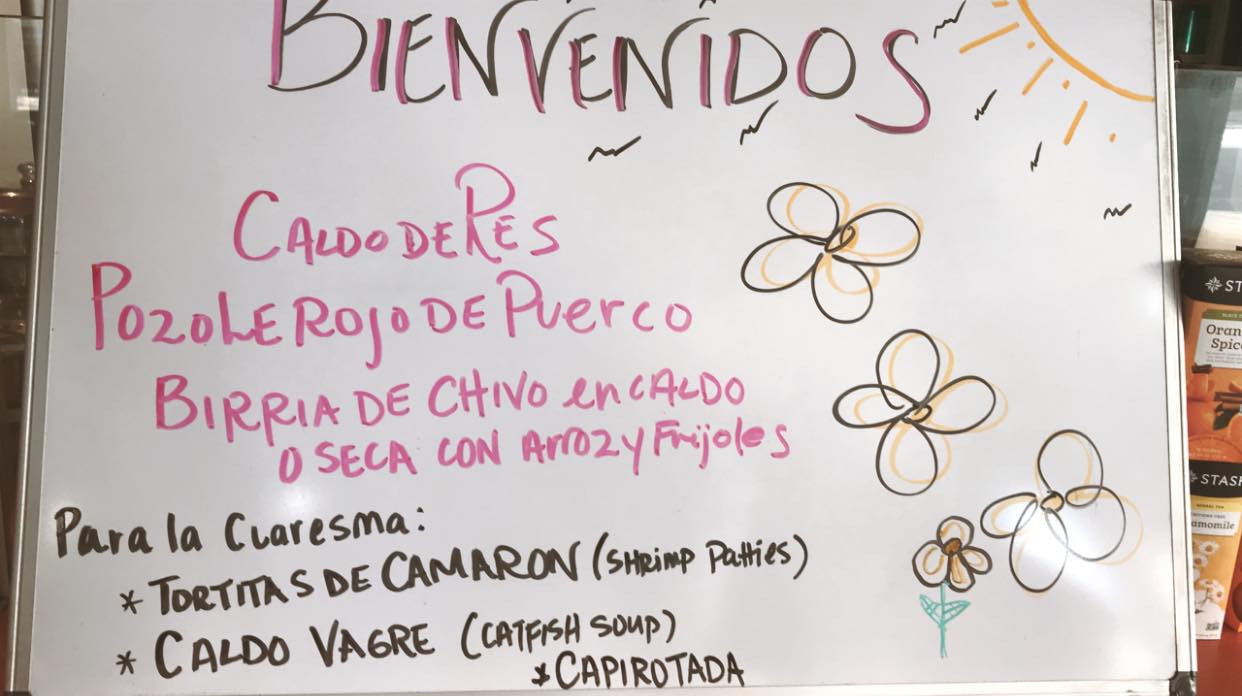 BIENVENIDOS
CALDO DE RES
POZOLE ROJO DE PUERCO
BIRRIA DE CHIVO en CALDO
O SECA CON Arroz y Frijoles
Para la Cuaresma:
* TORTITAS DE CAMARON (SHRIMP PaTTies)
* CALDO VAGRE (CATFISH SOUP)
* CAPIROTADA
ST
Oran
Spic
STASH
amomile